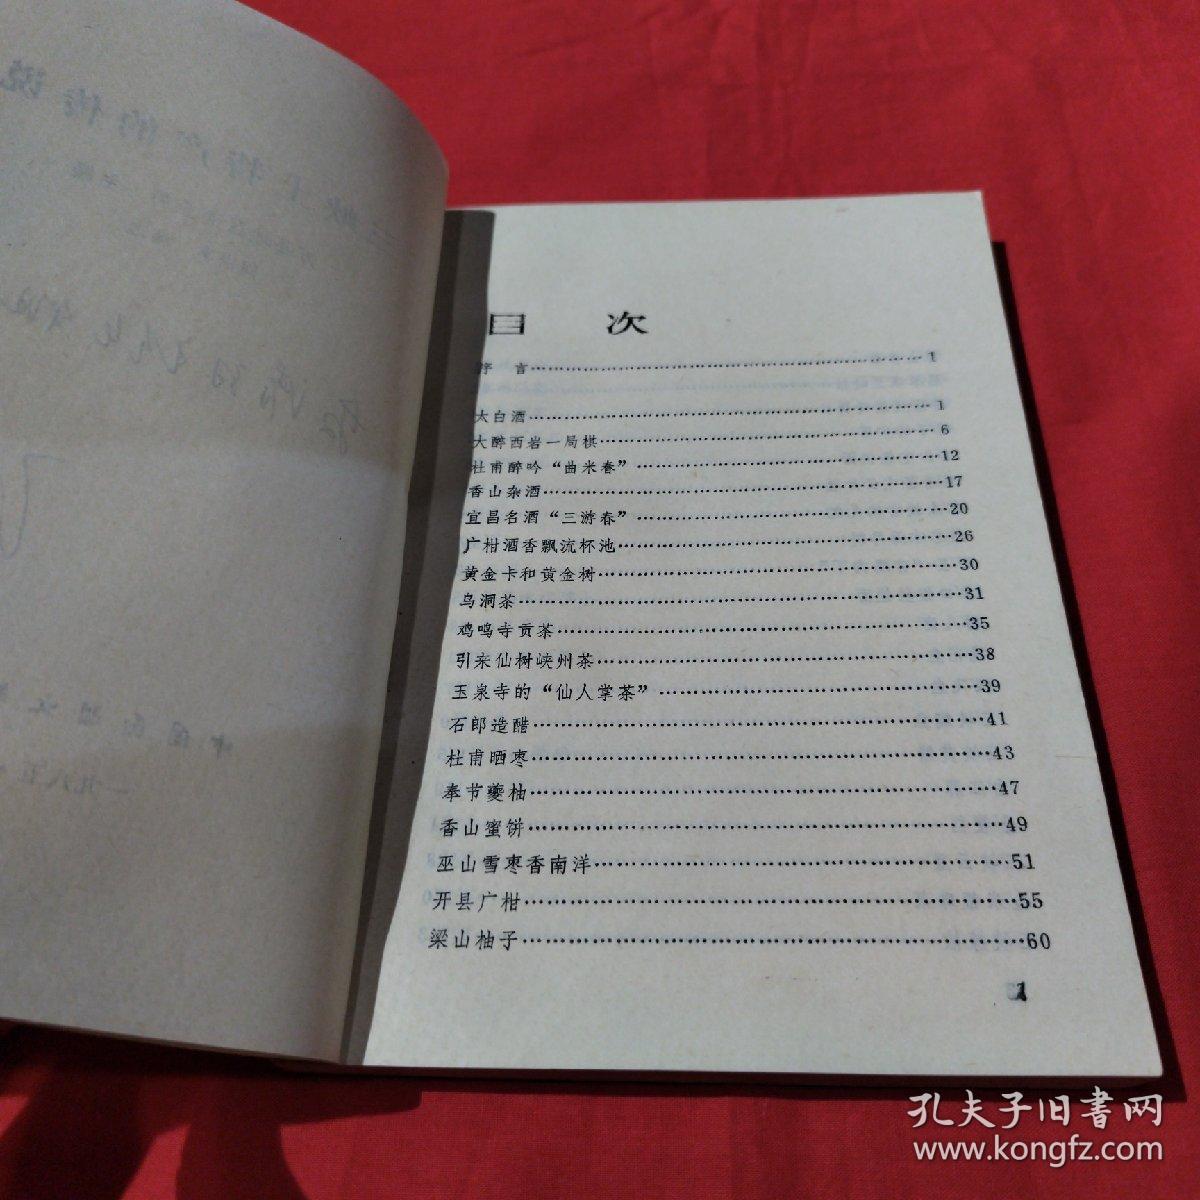 目 次
序 言……1
太白酒……1
大醉西岩一局棋……6
杜甫醉吟“曲米春”……12
香山杂酒……17
宜昌名酒“三游春”……20
广柑酒香飘流杯池……26
黄金卡和黄金树……30
乌洞茶……31
鸡鸣寺贡茶……35
引来仙树峡州茶……38
玉泉寺的“仙人掌茶”……39
石郎造醋……41
杜甫晒枣……43
奉节夔柚……47
香山蜜饼……49
巫山雪枣香南洋……51
开县广柑……55
梁山柚子……60
1
孔夫子旧書网
www.kongfz.com